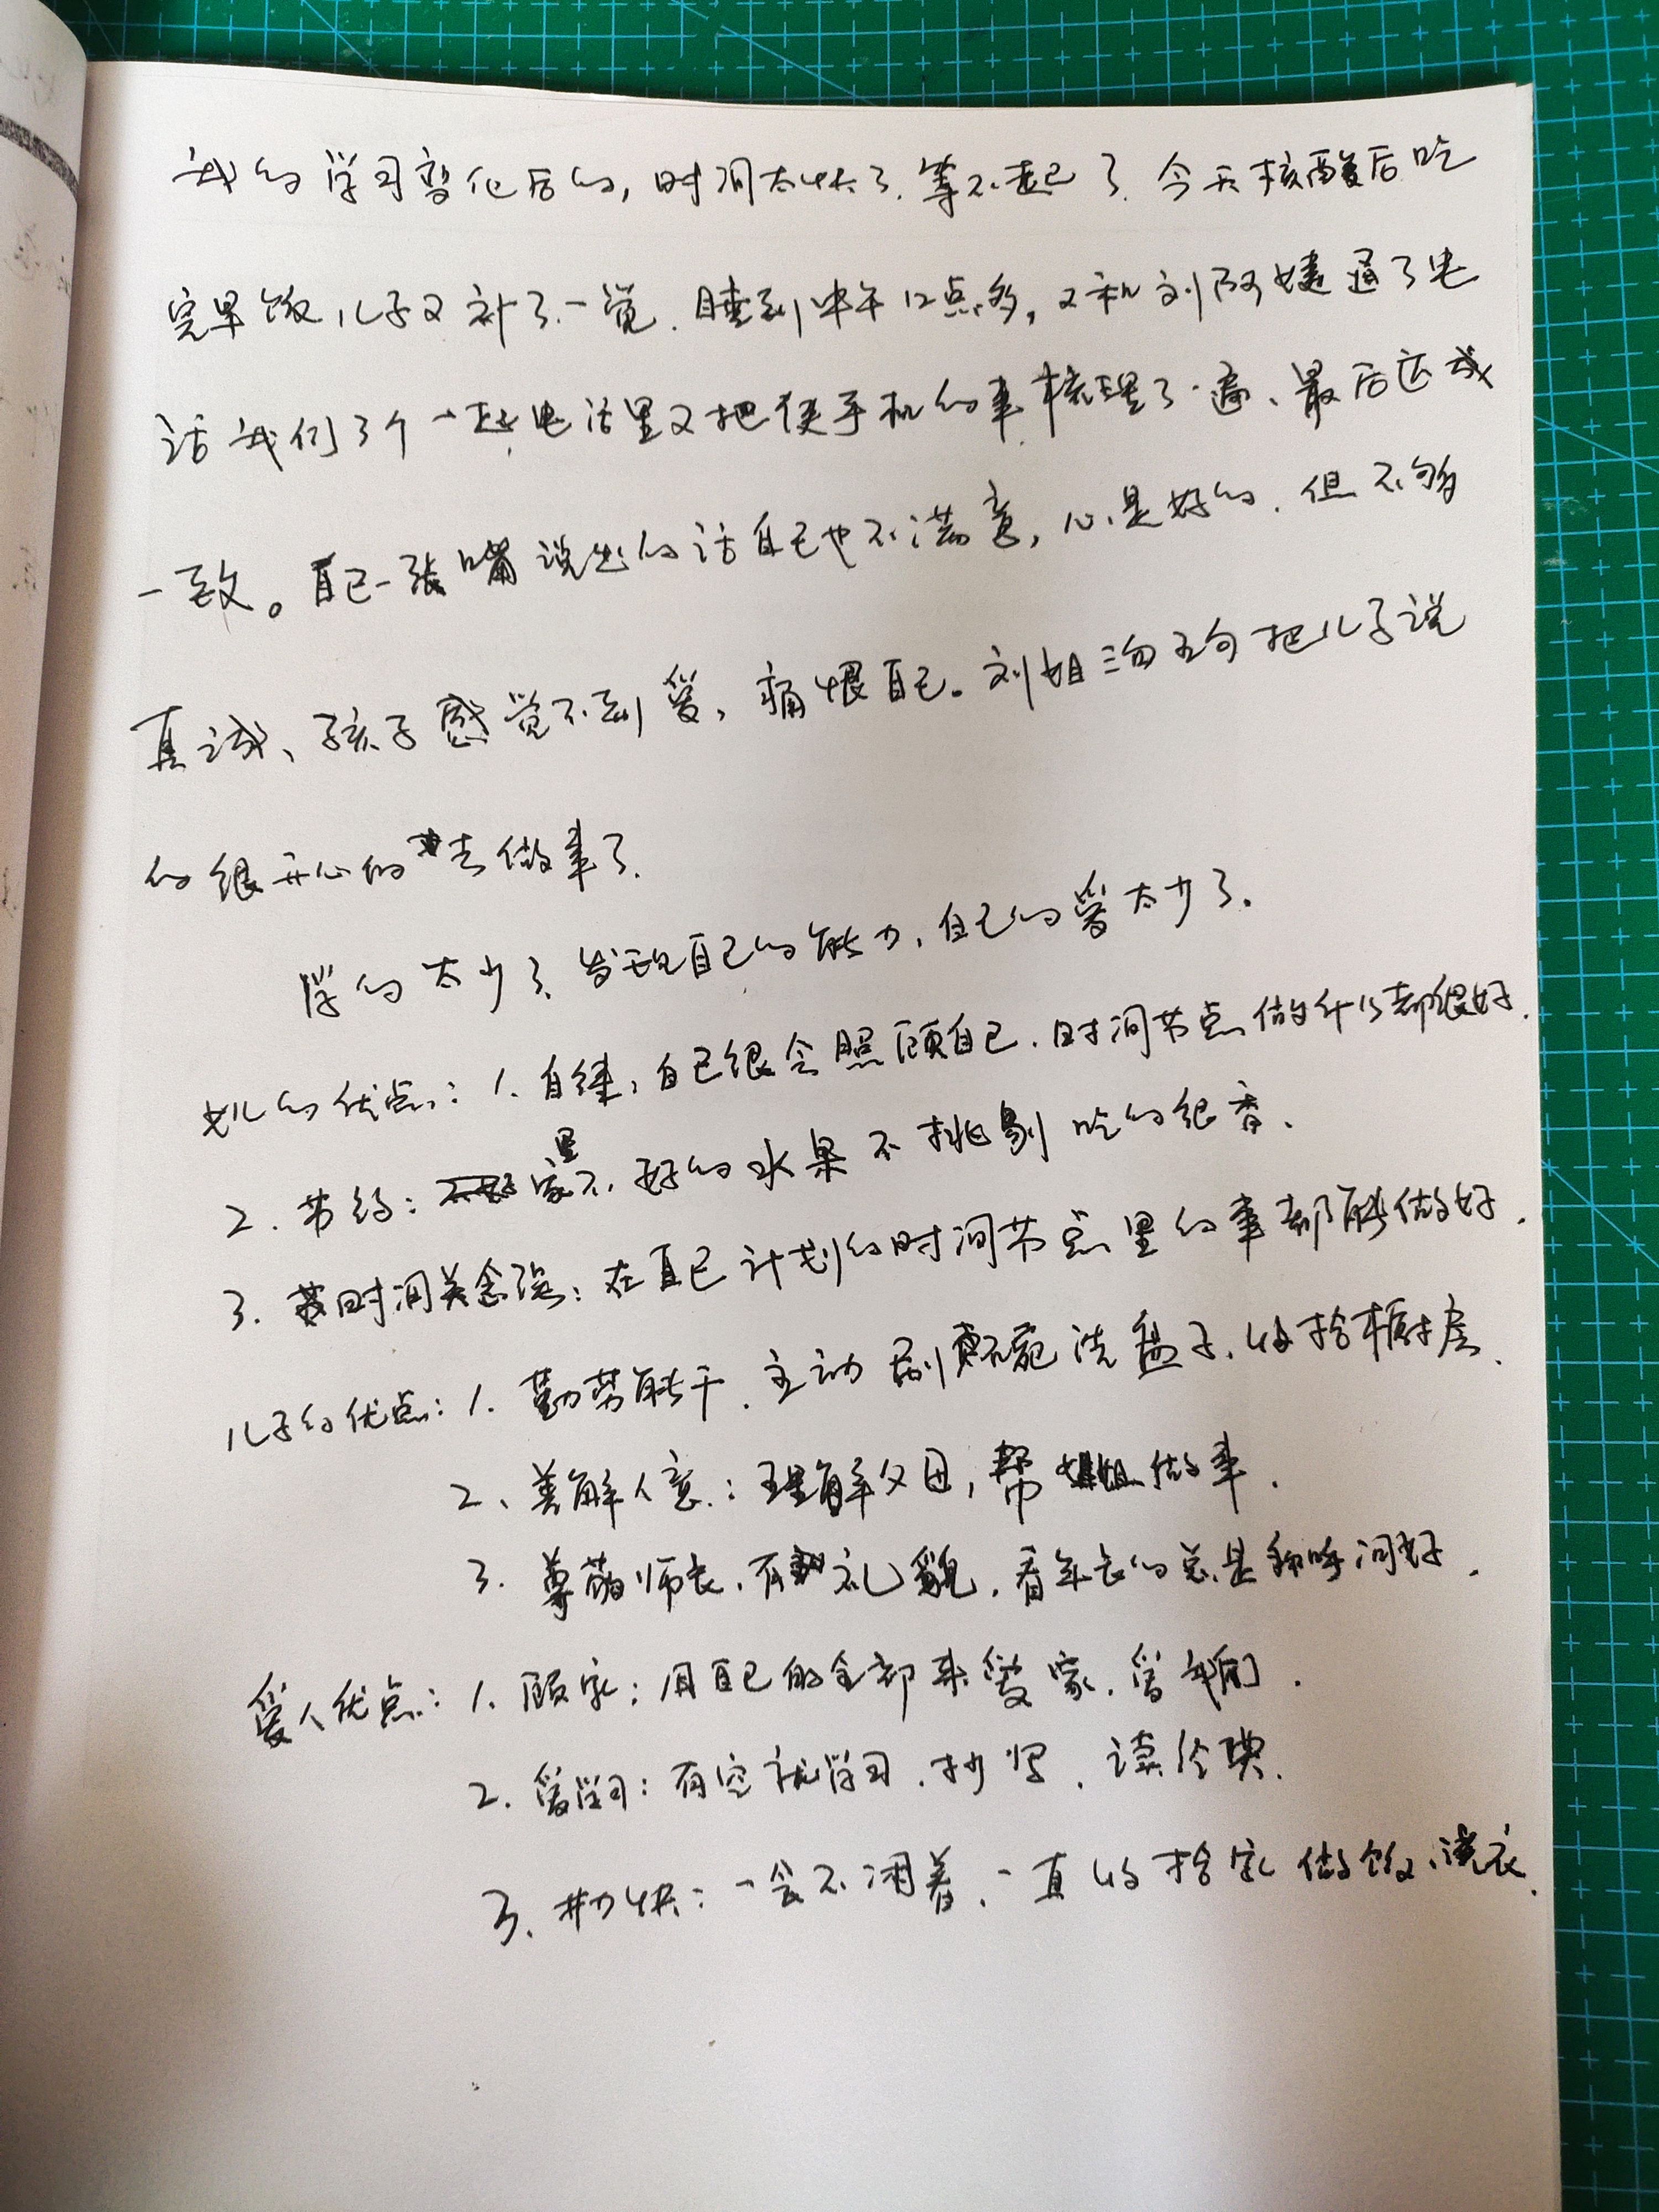 我的学习变化后的，时间太快了.等不起了.今天核酸后吃
完早饭，儿子又补了一觉.睡到中午12点多，又和刘阿姨通了电
话我们3个一起电话里又把使手机的事梳理了一遍、最后达成
一致。自己一张嘴说出的话自己也不满意，心是好的.但不够
真诚、孩子感觉不到爱，痛恨自己。刘姐三句五句把儿子说
的很开心的去做事了.
学的太少了、发现自己的能力、自己的爱太少了.
女儿的优点：1.自律，自己很会照顾自己.时间节点做什么都很好.
2.节约：家里不好的水果不挑剔吃的很香.
3.时间关念强：在自己计划的时间节点里的事都能做好.
儿子的优点：1.勤劳能干.主动刷碗洗盘子.收拾橱房.
2、善解人意：理解父母，帮姐姐做事.
3.尊师长.有礼貌.看年长的总是称呼问好.
爱人优点：1.顾家：用自己的全部来爱家.爱我们.
2.爱学习：有空就学习.抄写.读经典.
3.勤快：一会不闲着.一直收拾家做饭、洗衣.